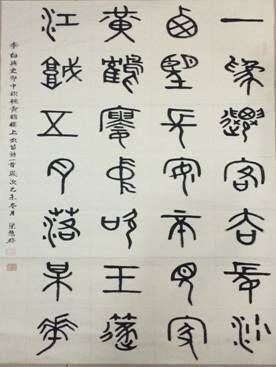 一為遷客去長沙
西望長安不見家
黃鶴樓中吹玉篴
江城五月落某華
李白與史郎中欽聽黃鶴樓上吹笛詩一首歲次乙未冬月